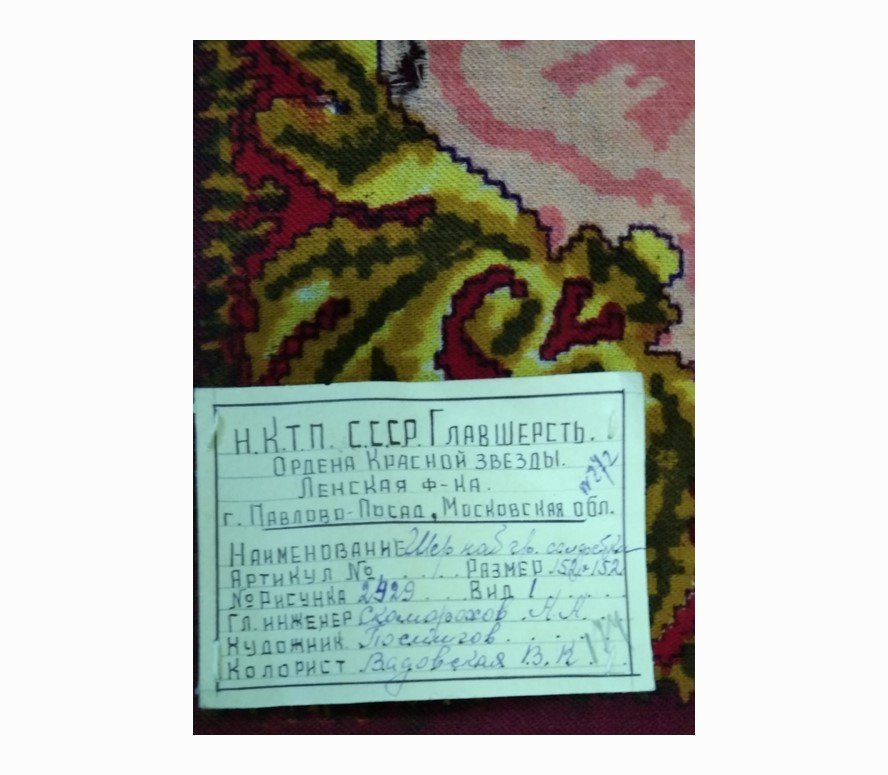 Н.К.Т.П. С.С.С.Р. ГЛАВШЕРСТЬ.
ОРДЕНА КРАСНОЙ ЗВЕЗДЫ.
ЛЕНСКАЯ Ф-КА.
г. ПАВЛОВО-ПОСАД, МОСКОВСКАЯ ОБЛ.
НАИМЕНОВАНИЕ Шер наб
АРТИКУЛ № РАЗМЕР 152x152
№ РИСУНКА 2929 ВИД 1
ГЛ. ИНЖЕНЕР Скоморохов А.А.
ХУДОЖНИК Постигов
КОЛОРИСТ Вадовская В. К.